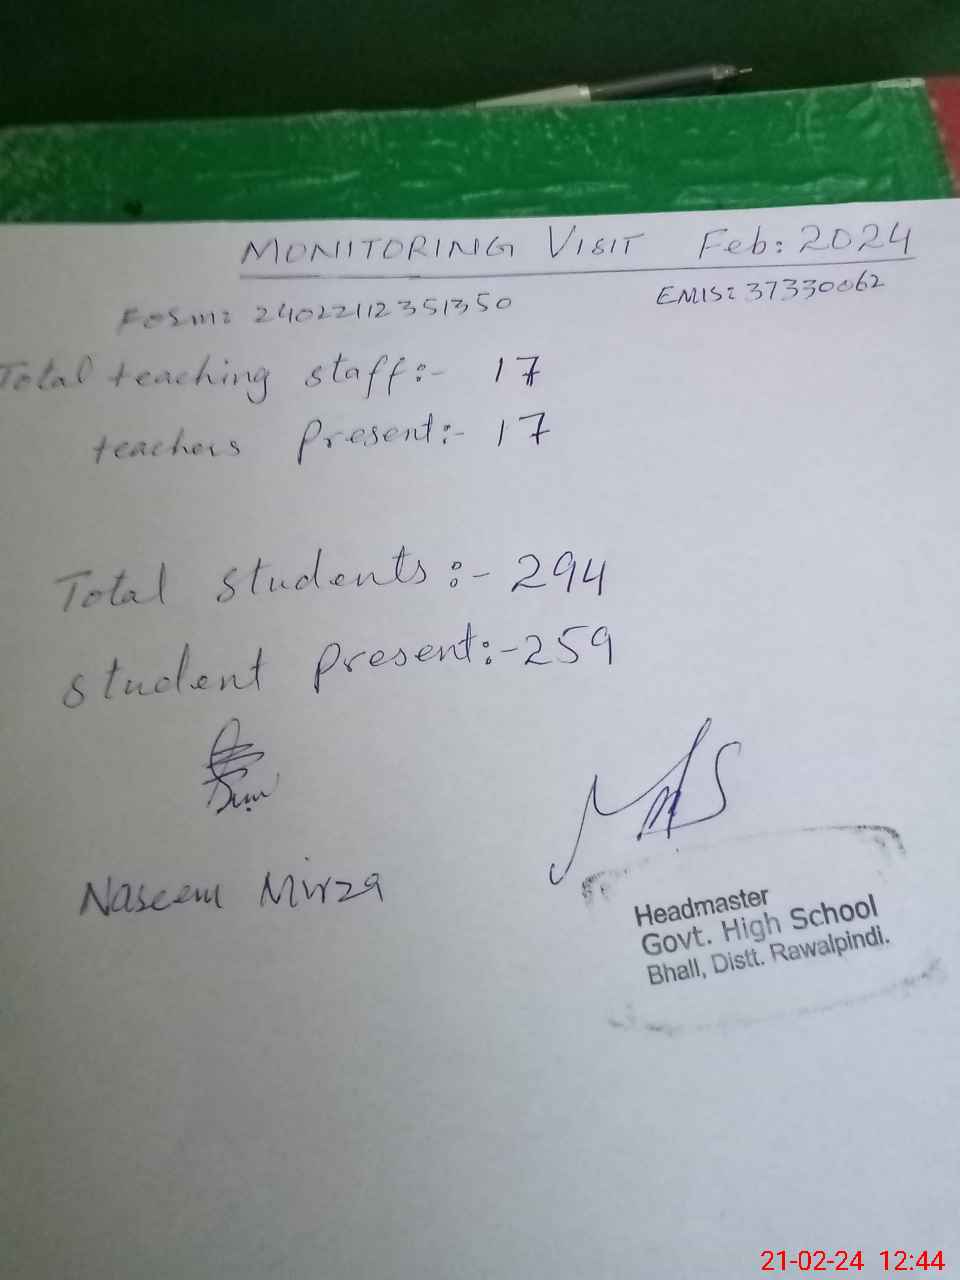 MONITORING VISIT Feb: 2024
Form: 24022112351350 EMIS: 37330062
Total teaching staff:- 17
teachers Present:- 17
Total students:- 294
student present:- 259
Naseem Mirza
Headmaster
Govt. High School
Bhall, Distt. Rawalpindi.
21-02-24 12:44